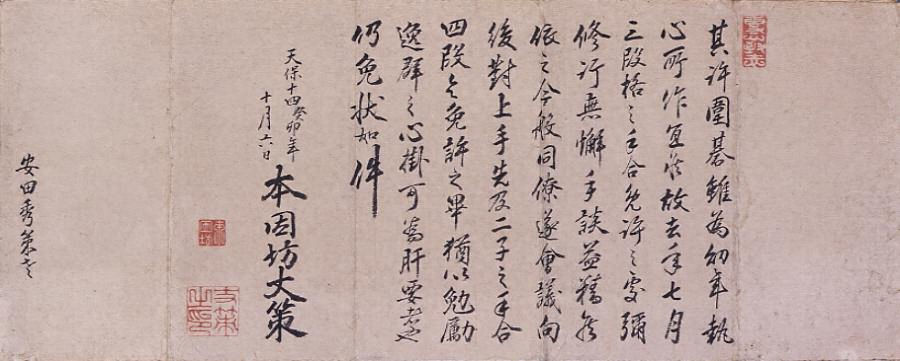 其許圍棊雖為幼年執
心所作宜敷故去年七月
三段格之手合免許之處彌
修行無懈手談益精然
依之今般同僚遂會議向
後對上手先及二子之手合
四段令免許之畢猶以勉勵
逸群之心掛可為肝要者也
仍免狀如件
天保十四癸卯年
十月六日
本因坊丈策
安田秀策老